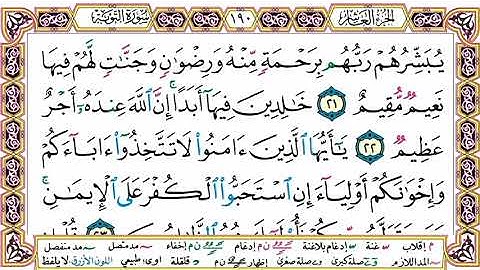 الجزء العاشر ١٩٠ سورة التوبة
يُبَشِّرُهُمْ رَبُّهُم بِرَحْمَةٍ مِّنْهُ وَرِضْوَٰنٍ وَجَنَّٰتٍ لَّهُمْ فِيهَا
نَعِيمٌ مُّقِيمٌ ٢١ خَٰلِدِينَ فِيهَآ أَبَدًا ۚ إِنَّ ٱللَّهَ عِندَهُۥٓ أَجْرٌ
عَظِيمٌ ٢٢ يَٰٓأَيُّهَا ٱلَّذِينَ ءَامَنُوا۟ لَا تَتَّخِذُوٓا۟ ءَابَآءَكُمْ
وَإِخْوَٰنَكُمْ أَوْلِيَآءَ إِنِ ٱسْتَحَبُّوا۟ ٱلْكُفْرَ عَلَى ٱلْإِيمَٰنِ ۚ
م إقلاب س غنة س إدغام بلاغنة ن م إدغام ن م إخفاء مد متصل مد منفصل
المد اللازم صلة كبرى وصلة صغرى إظهار ن م قلقلة اوى: طبيعي اللون الأزرق لا يلفظ